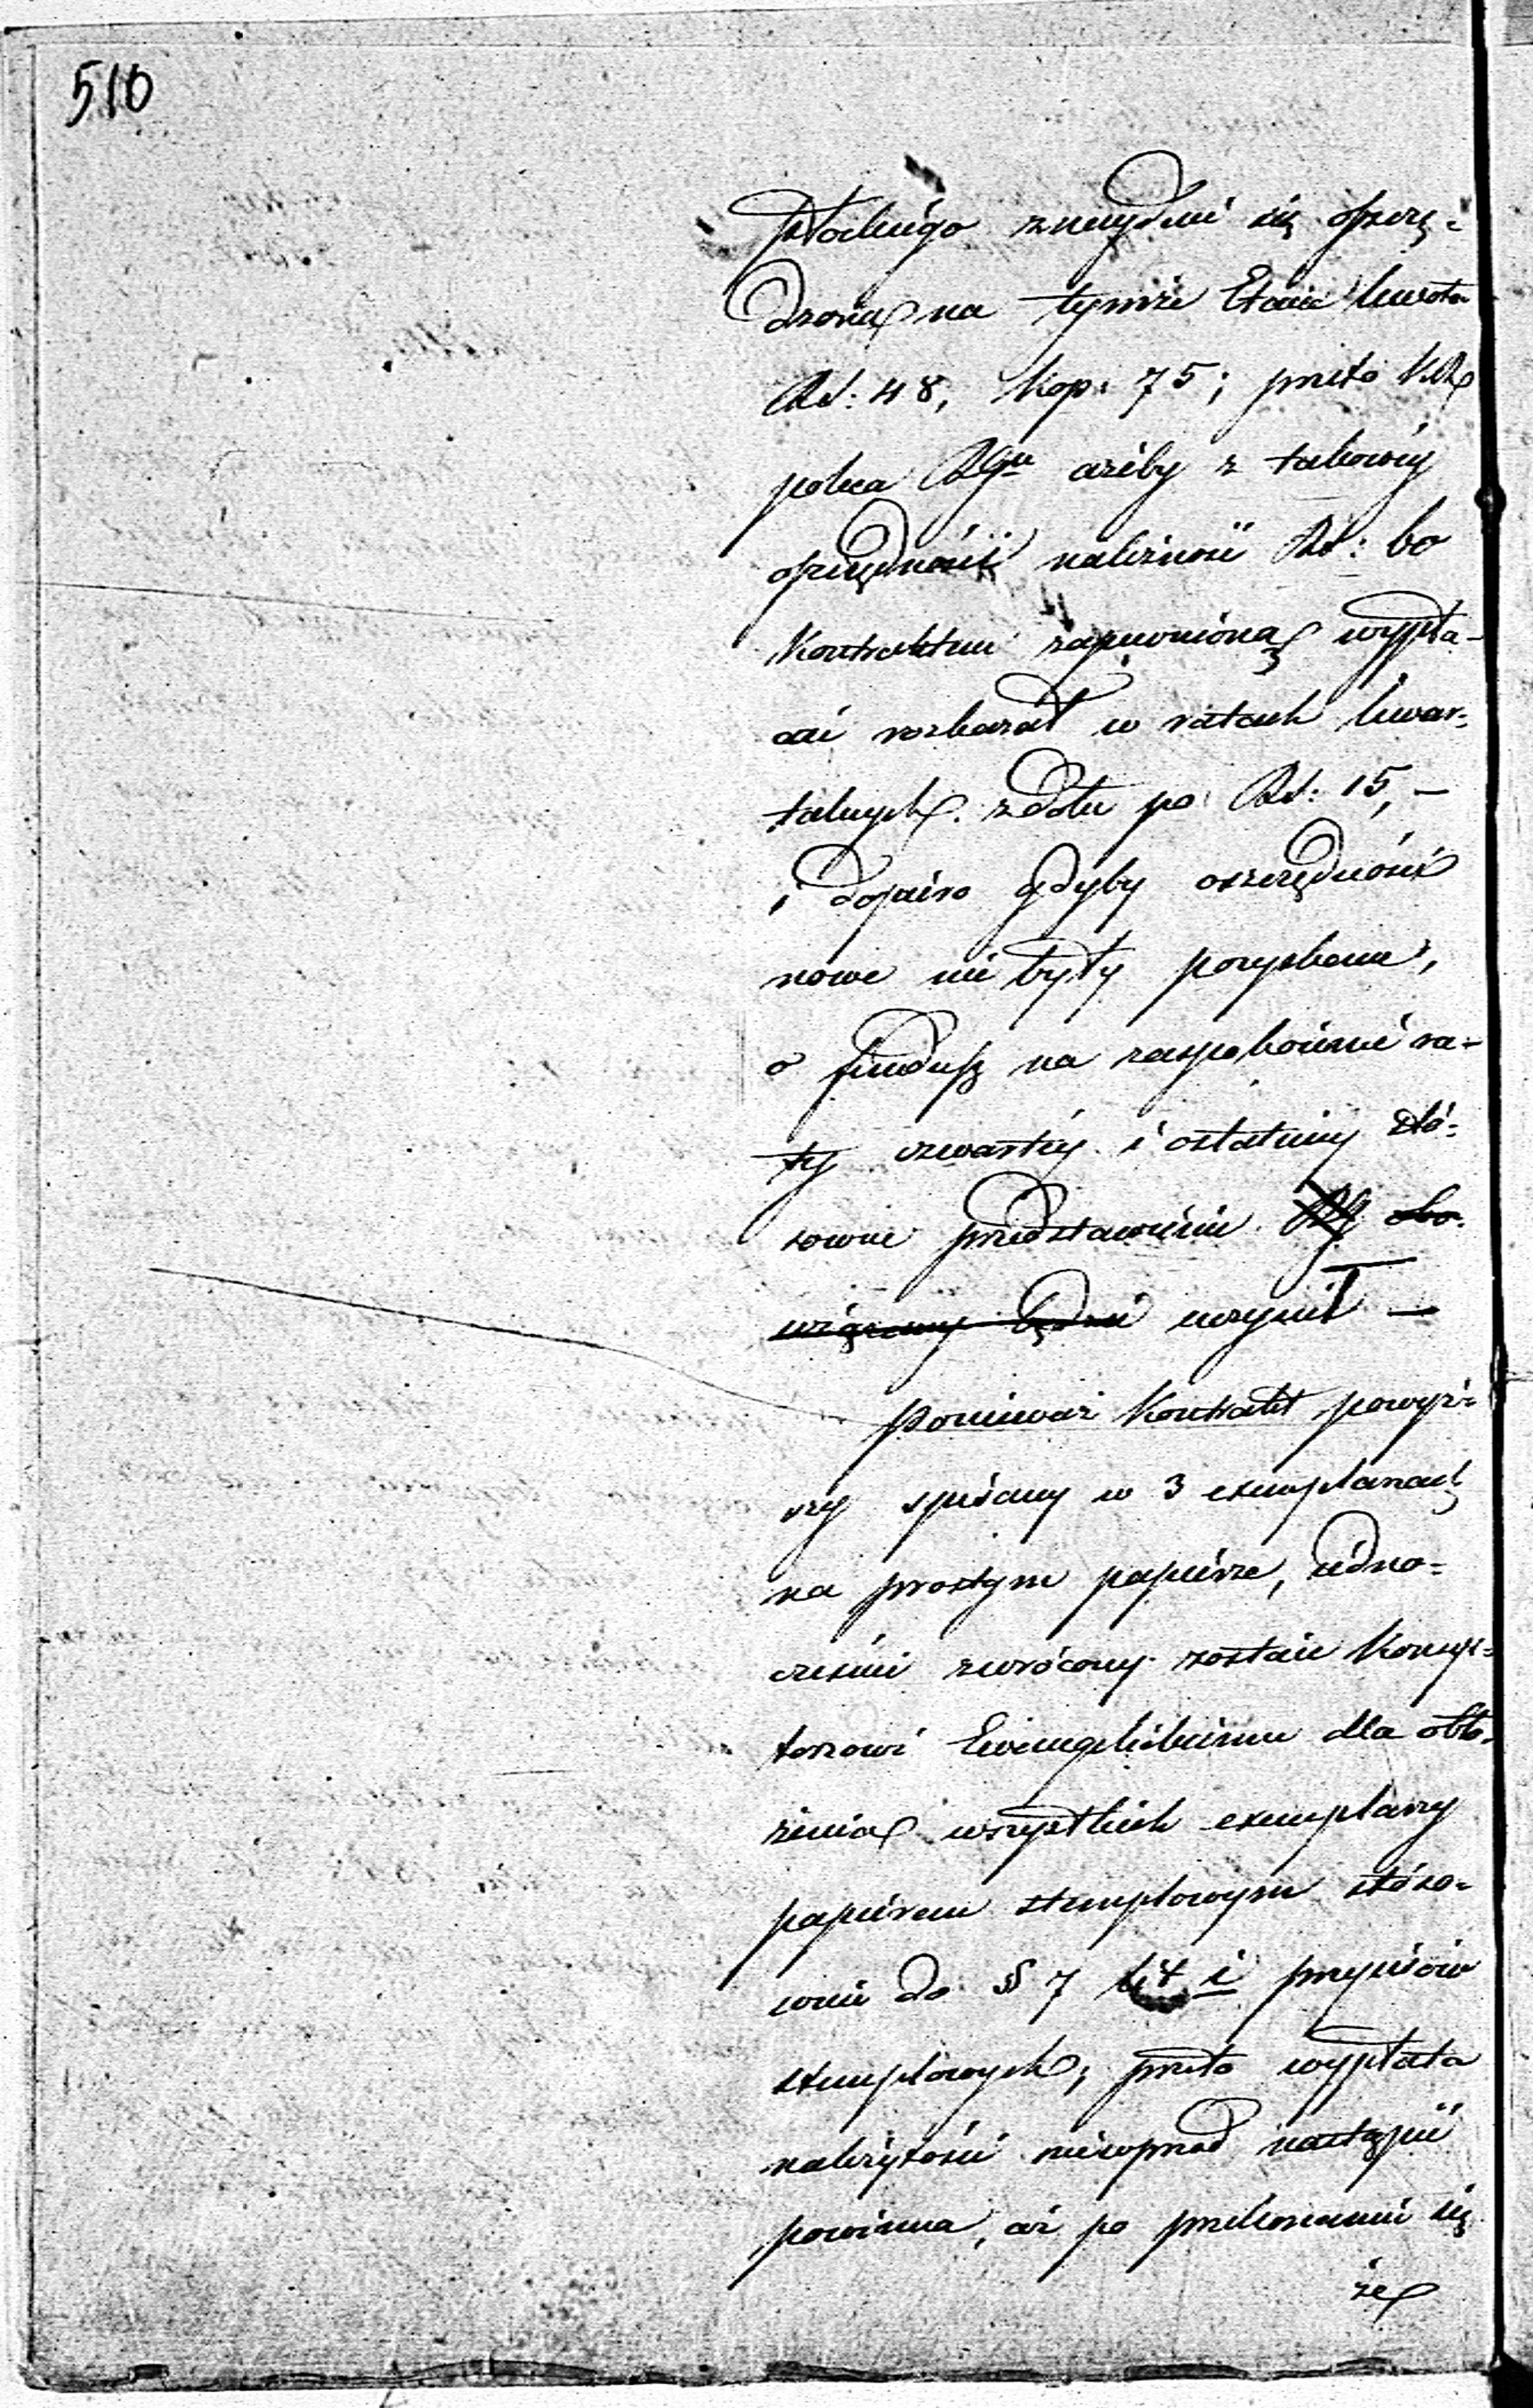 510
znayduie się oszczę-
dzona na tymże Etacie kwota
RS: 48, kop: 75; przeto KR
poleca RGu ażeby z takowéy
oszczędności należność RS: 60
Kontraktem zapewnioną wypła-
cać rozkazał w ratach kwar-
talnych z dołu po RS: 15,—
i dopiéro gdyby oszczędności
nowe nie były pozyskane,
o fundusz na zaspokoienie ra-
ty czwartéy i ostatniéy stó-
sowne przedstawienie RG obo-
wiązany będzie uczynił —
Ponieważ Kontrakt powyż-
szy spisany w 3 exemplarzach
na prostym papierze, iedno-
cześnie zwrócony zostaie Konsys-
torzowi Ewangelickiemu dla obło-
żenia wszystkich exemplarzy
papierem stemplowym stóso-
wnie do § 7 lit i przepisów
stemplowych; przeto wypłata
należytości niewprzód nastąpić
powinna, aż po przekonaniu się
że